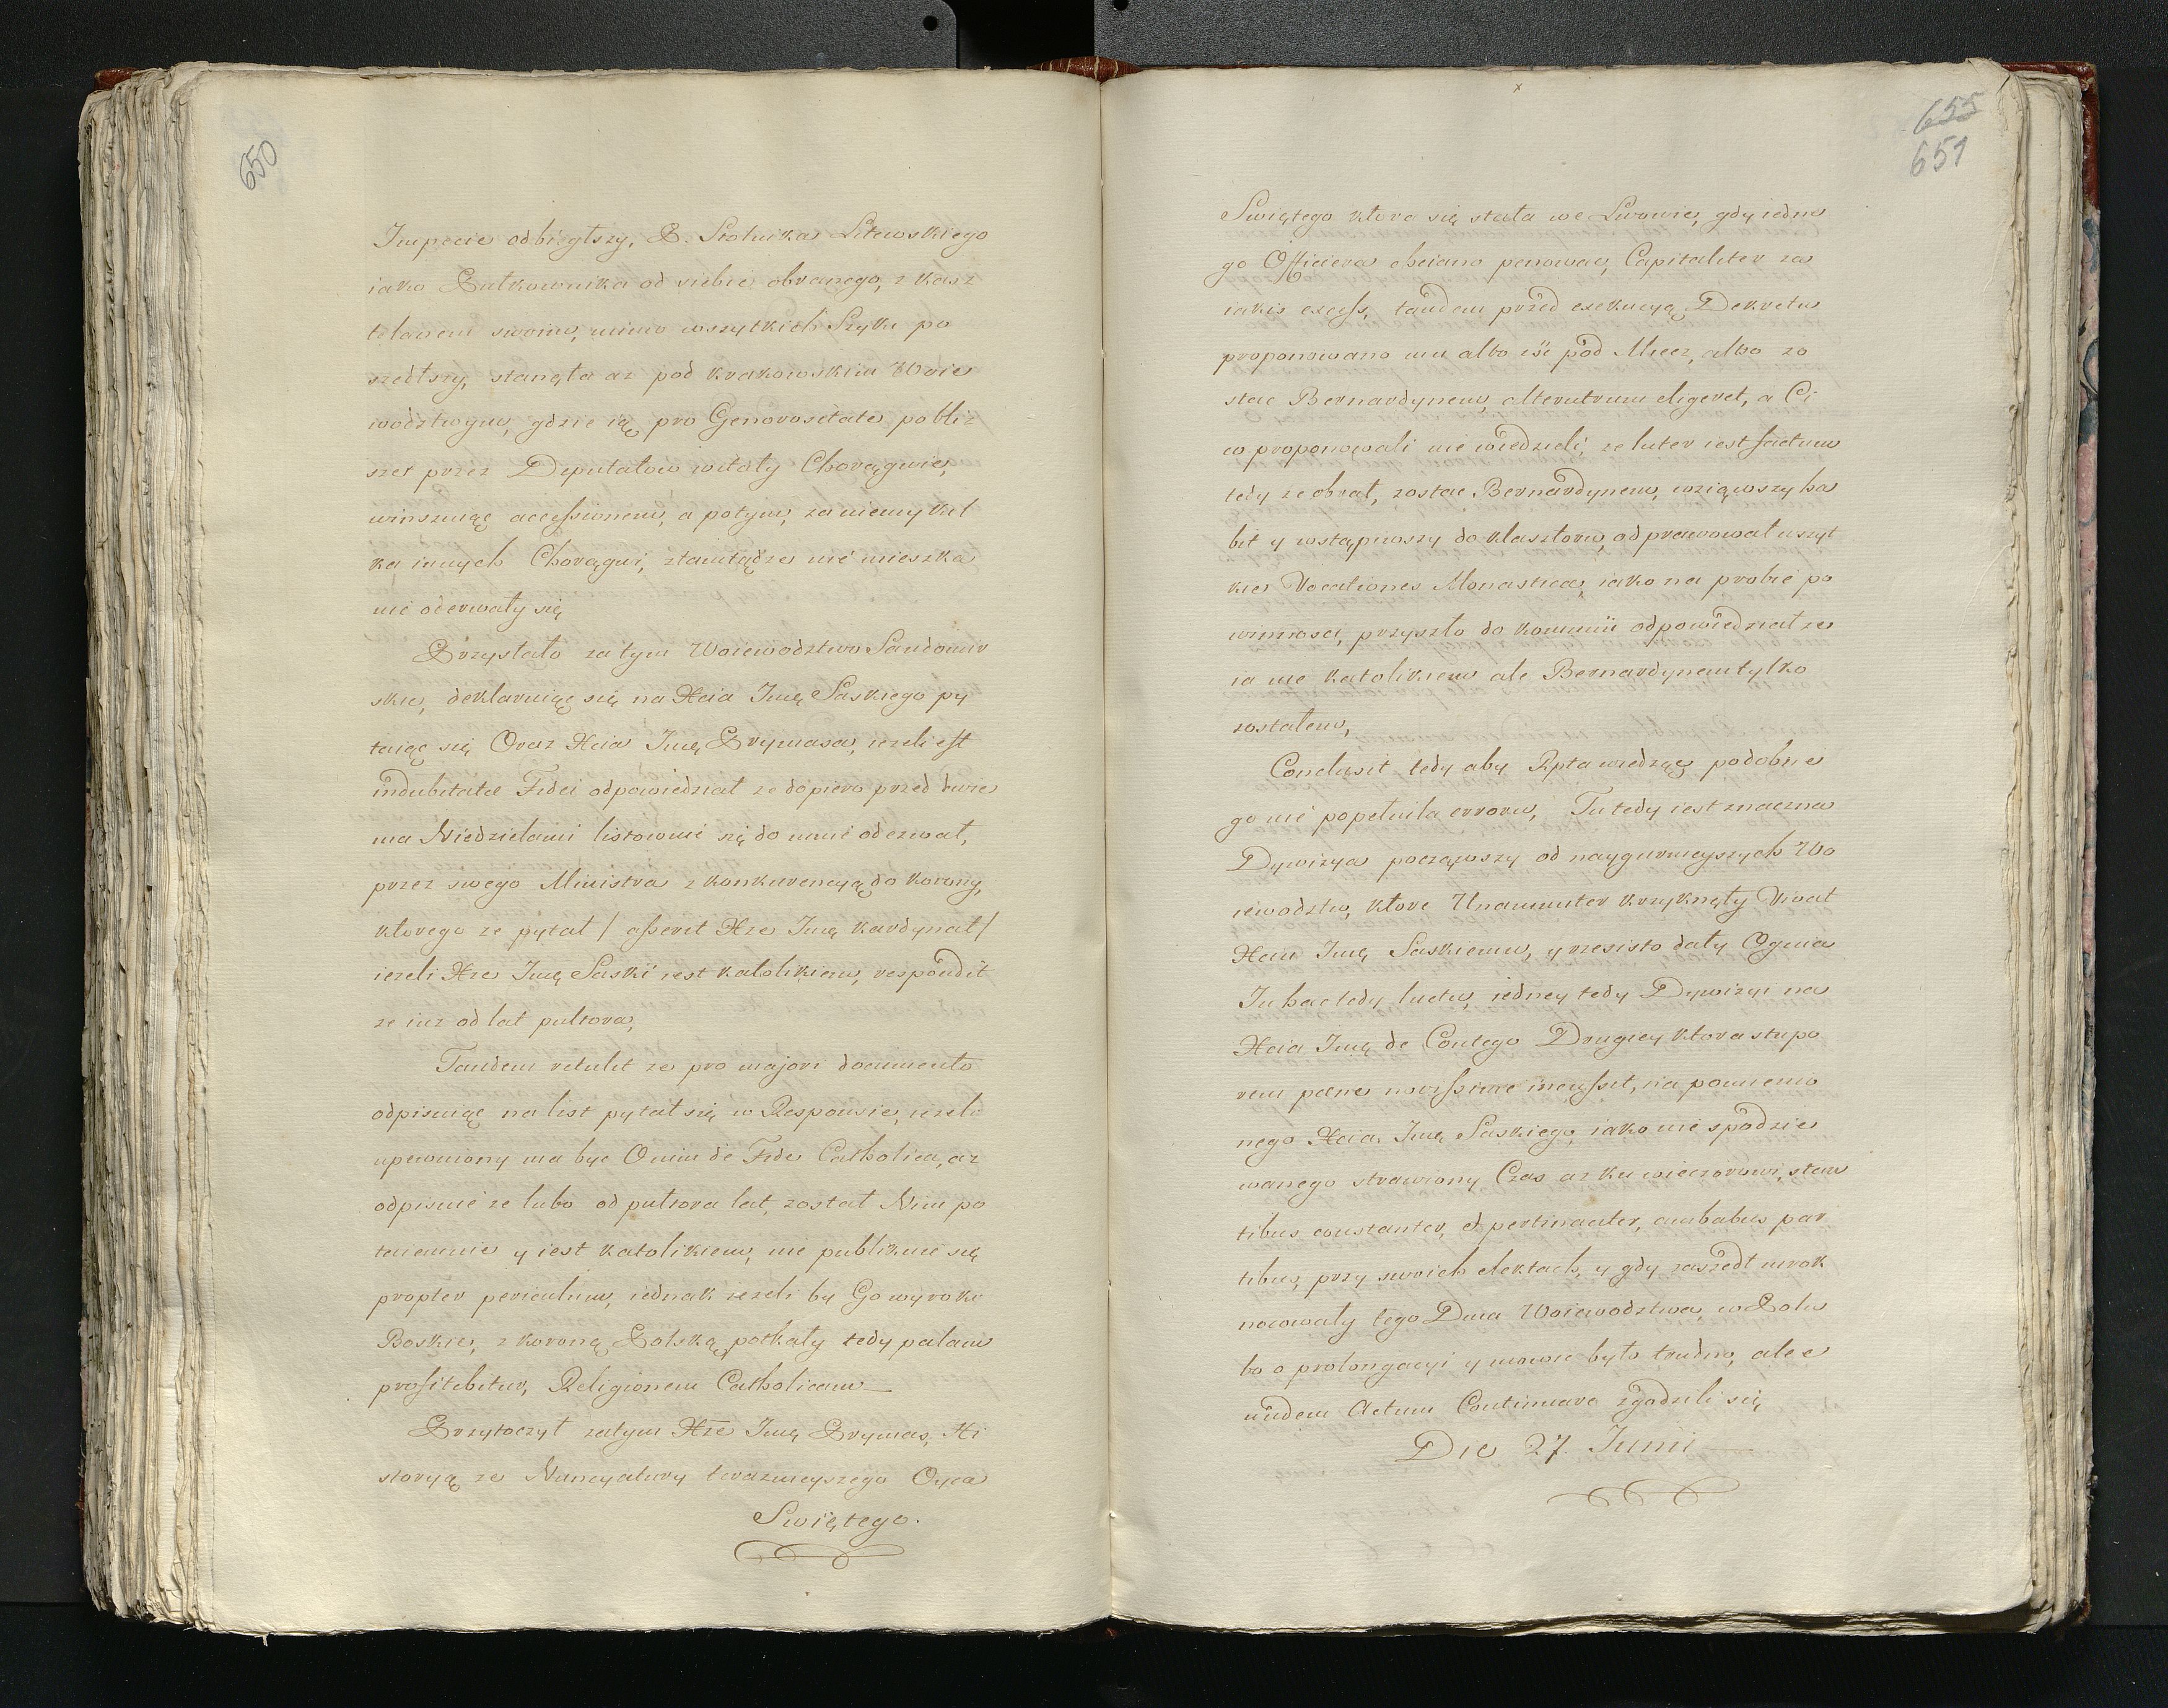 650
Impecie odbiegłszy, P. Stolnika Litewskiego
iako Pułkownika od siebie obranego, z kasz
telanem swoim, mimo wszytkich Szyku po
szedłszy, stanęła az pod krakowskim Woie
wodztwym, gdzie ią pro Generositate pobliz
szei przez Deputatow witały Chorągwie,
winszuiąc accessionem, a potym, za niemy kil
ka innych Chorągwi, ztamtądze nie mieszka
nie oderwały się
Przystało za tym Woiewodztwo Sandomir
skie, deklaruiąc się na Xcia Imę Saskiego py
taiąc się Oraz Xcia Imę Prymasa, iezeli est
indubitatæ Fidei odpowiedział ze dopiero przed dwie
ma Niedzielami listownie się do mnie odezwał,
przez swego Ministra z konkurencyą do korony,
ktorego ze pytał / asserit Xze Imę kardynał /
iezeli Xze Imę Saski iest katolikiem, respondit
ze iuz od lat pułtora,
Tandem retulit ze pro majori documento
odpisuiąc na list pytał się w Responsie, iezeli
upewniony ma byc O nim de Fide Catholica, az
odpisuie ze lubo od pułtora lat, został Nim po
taiemnie y iest katolikiem, nie publikuie się
propter periculum, iednak iezeli by Go wyroki
Boskie, z koroną Polską potkały tedy palam
profitebitur, Religionem Catholicam
Przytoczył zatym Xze Imę Prymas, Hi
storyą ze Nuncyatury terazneyszego Oyca
Swiętego.
655
651
x
Swiętego ktora się stała we Lwowie, gdy iedne
go Officiera chciano penowac, Capitaliter za
iakis excess, tandem przed exekucyą Dekretu
proponowano mu albo isc pod Miecz, albo zo
stac Bernardynem, alterutrum eligeret, a Ci
co proponowali nie wiedzieli, ze luter iest factum
tedy ze obrał, zostac Bernardynem, wziąwszy ha
bit y wstąpiwszy do klasztoru, odprawował wszyt
kie Vocationes Monasticas, iako na probie po
winnosci, przyszło do kommunii odpowiedział ze
ia nie katolikiem ale Bernardynem tylko
zostałem,
Conclusit tedy aby Rpta wiedząc podobne
go nie popełniła erroru, Tu tedy iest znaczna
Dywizya począwszy od naygurnieyszych Wo
iewodztw, ktore Unanimiter krzyknęły Vivat
Xciu Imę Saskiemu, y rzesisto dały Ognia
In hac tedy luctu, iedney tedy Dywizyi na
Xcia Imę de Contego Drugiey ktora stupo
rem pæne novissime incussit, na pomienio
nego Xcia Imę Saskiego, iako nie spodzie
wanego strawiony Czas az ku wieczorowi, stan
tibus constanter, et pertinaciter, ambabus par
tibus, przy swoich elektach, y gdy zaszedł mrok
nocowały tego Dnia Woiewodztwa, w Polu
bo o prolongacyi y mowie było trudno, ale e
undem Actum Continuare zgodzili się
Die 27. Junii